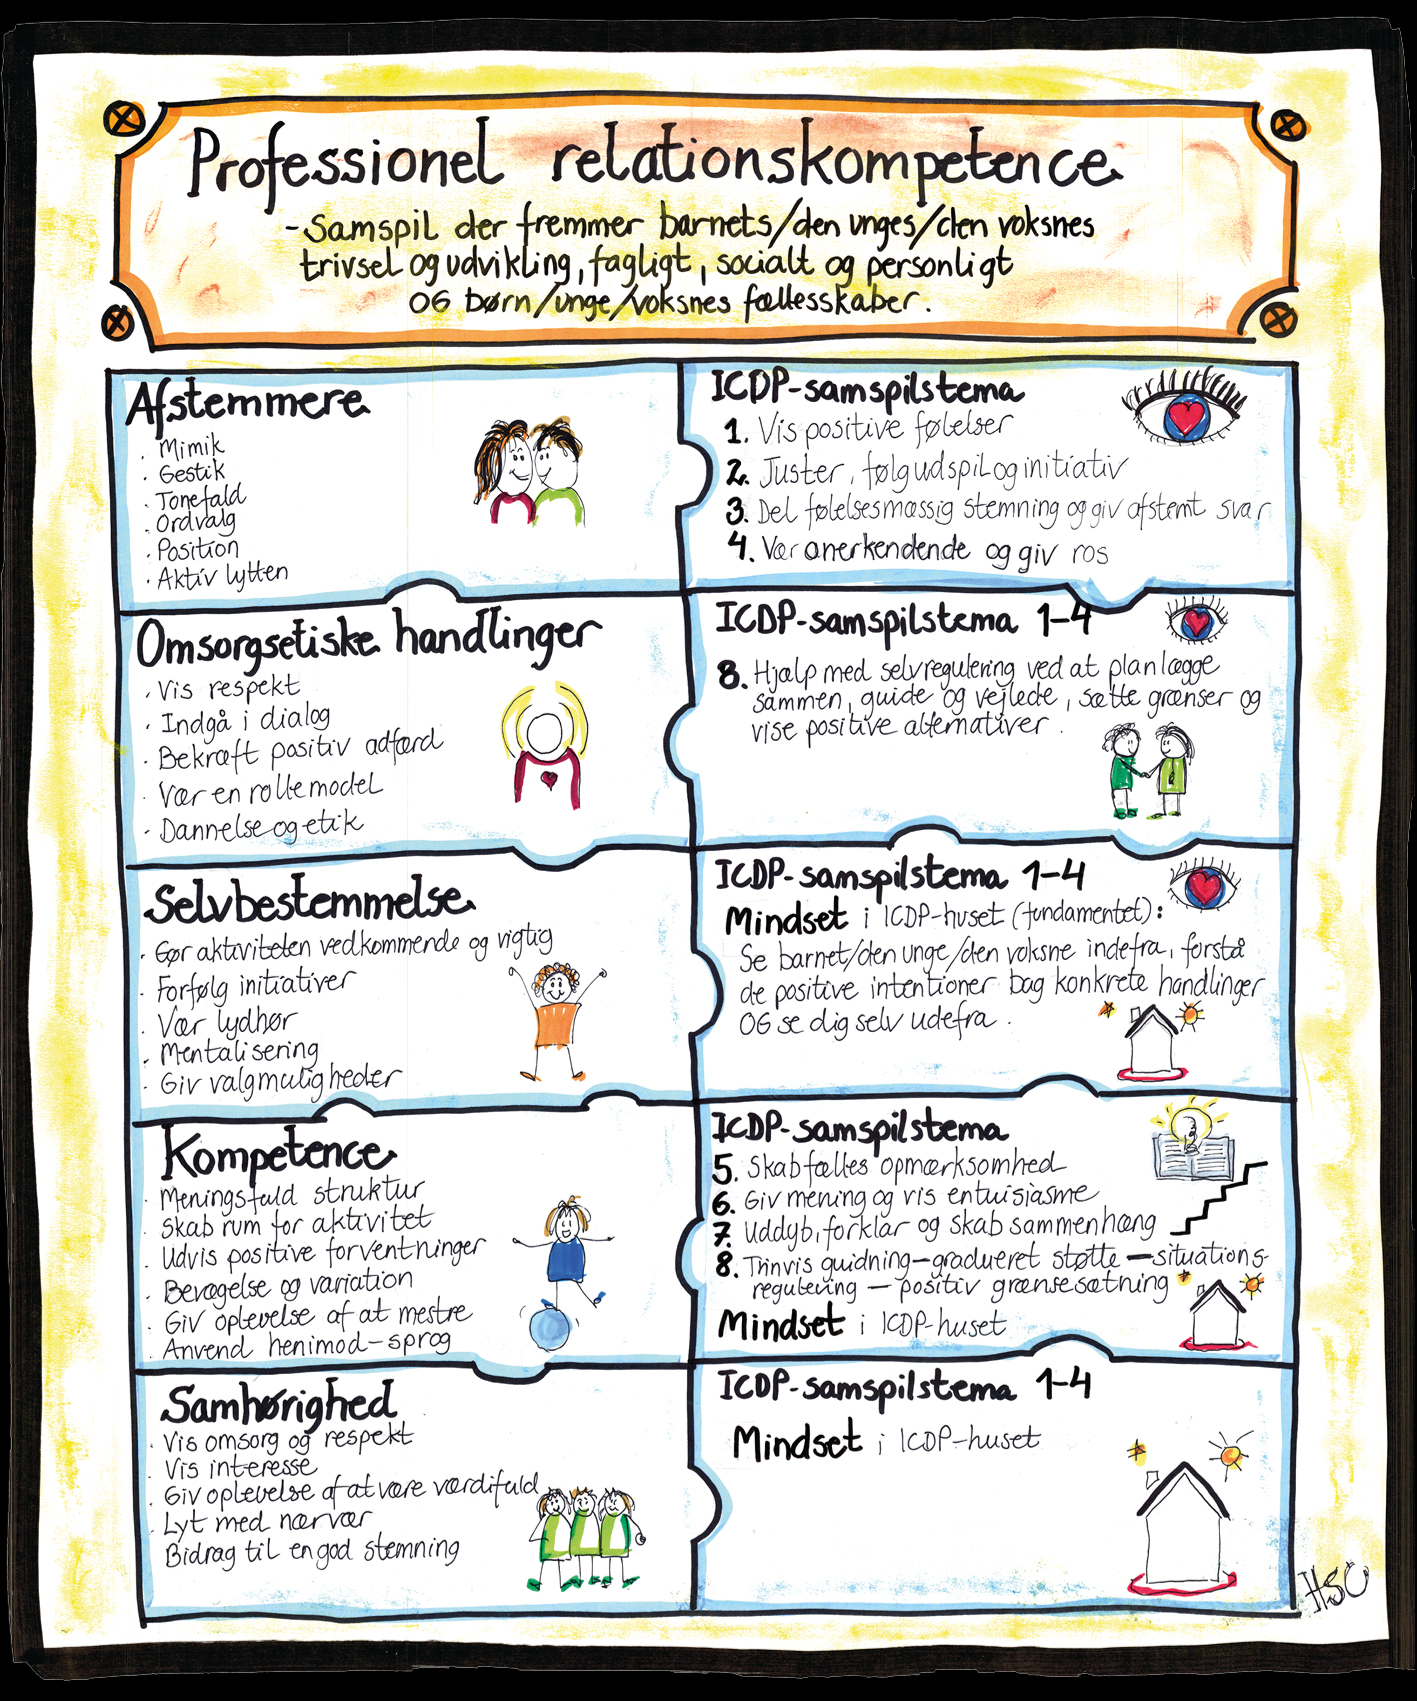 Professionel relationskompetence
- Samspil der fremmer barnets/den unges/den voksnes
trivsel og udvikling, fagligt, socialt og personligt
OG børn/unge/voksnes fællesskaber.
Afstemmere
· Mimik
· Gestik
· Tonefald
· Ordvalg
· Position
· Aktiv lytten
ICDP-samspilstema
1. Vis positive følelser
2. Juster, følg udspil og initiativ
3. Del følelsesmæssig stemning og giv afstemt svar
4. Vær anerkendende og giv ros
Omsorgsetiske handlinger
· Vis respekt
· Indgå i dialog
· Bekræft positiv adfærd
· Vær en rollemodel
· Dannelse og etik
ICDP-samspilstema 1-4
8. Hjælp med selvregulering ved at planlægge
sammen, guide og vejlede, sætte grænser og
vise positive alternativer.
Selvbestemmelse
· Gør aktiviteten vedkommende og vigtig
· Forfølg initiativer
· Vær lydhør
· Mentalisering
· Giv valgmuligheder
ICDP-samspilstema 1-4
Mindset i ICDP-huset (fundamentet):
Se barnet/den unge/den voksne indefra, forstå
de positive intentioner bag konkrete handlinger
OG se dig selv udefra.
Kompetence
· Meningsfuld struktur
· Skab rum for aktivitet
· Udvis positive forventninger
· Bevægelse og variation
· Giv oplevelse af at mestre
· Anvend henimod-sprog
ICDP-samspilstema
5. Skab fælles opmærksomhed
6. Giv mening og vis entuisiasme
7. Uddyb, forklar og skab sammenhæng
8. Trinvis guidning - gradueret støtte - situations-
regulering - positiv grænsesætning
Mindset i ICDP-huset
Samhørighed
· Vis omsorg og respekt
· Vis interesse
· Giv oplevelse af at være værdifuld
· Lyt med nærvær
· Bidrag til en god stemning
ICDP-samspilstema 1-4
Mindset i ICDP-huset
HSC